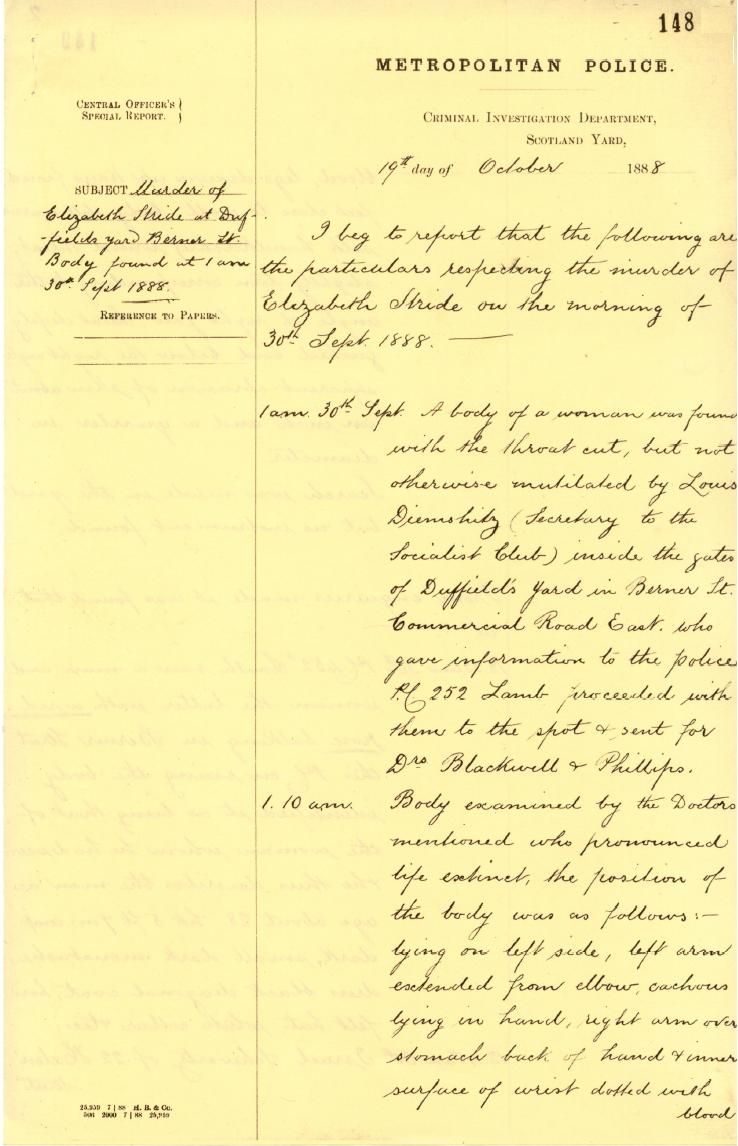 148
METROPOLITAN POLICE.
CENTRAL OFFICER'S
SPECIAL REPORT.
CRIMINAL INVESTIGATION DEPARTMENT,
SCOTLAND YARD,
19th day of October 1888
SUBJECT Murder of
Elizabeth Stride at Duf-
-fields yard Berner St.
Body found at 1 am
30th Sept 1888.
REFERENCE TO PAPERS.
I beg to report that the following are
the particulars respecting the murder of
Elizabeth Stride on the morning of
30th Sept. 1888. —
1 am. 30th Sept. A body of a woman was found
with the throat cut, but not
otherwise mutilated by Louis
Diemshitz (Secretary to the
Socialist Club) inside the gates
of Duffield's Yard in Berner St.
Commercial Road East. who
gave information to the police
P.C. 252 Lamb proceeded with
them to the spot & sent for
Drs Blackwell & Phillips.
1. 10 am. Body examined by the Doctors
mentioned who pronounced
life extinct, the position of
the body was as follows:—
lying on left side, left arm
extended from elbow, cachous
lying in hand, right arm over
stomach back of hand & inner
surface of wrist dotted with
blood
25,959 7 | 88 H. B. & Co.
506 2000 7 | 88 25,959